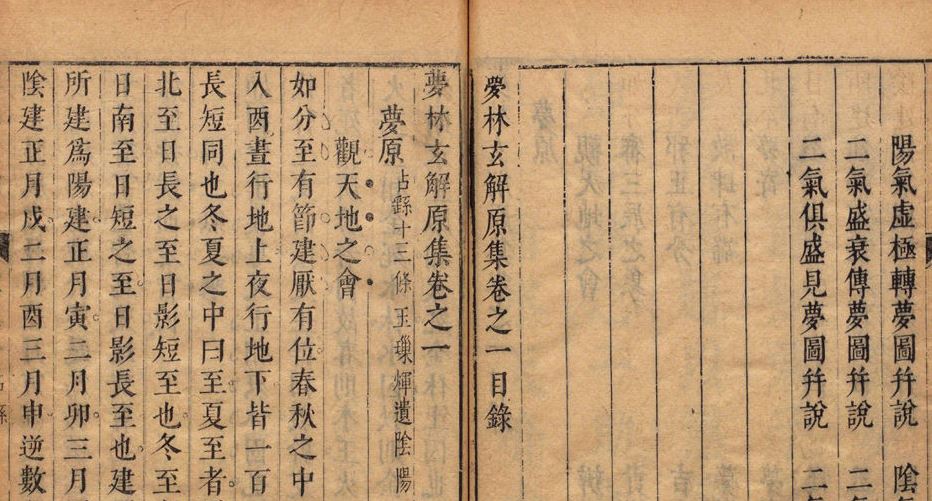 陽氣虛極轉夢圖幷說 陰
二氣盛衰傳夢圖幷說
二氣俱盛見夢圖幷說 二
夢林玄解原集卷之一目錄
夢林玄解原集卷之一
夢原 占繇十三條 王璅輝遺陰陽
觀天地之會
如分至有節建厭有位春秋之中
入酉晝行地上夜行地下皆一百
長短同也冬夏之中曰至夏至者
北至日長之至日影短至也冬至
日南至日短之至日影長至也建
所建爲陽建正月寅二月卯三月
陰建正月戌二月酉三月申逆數